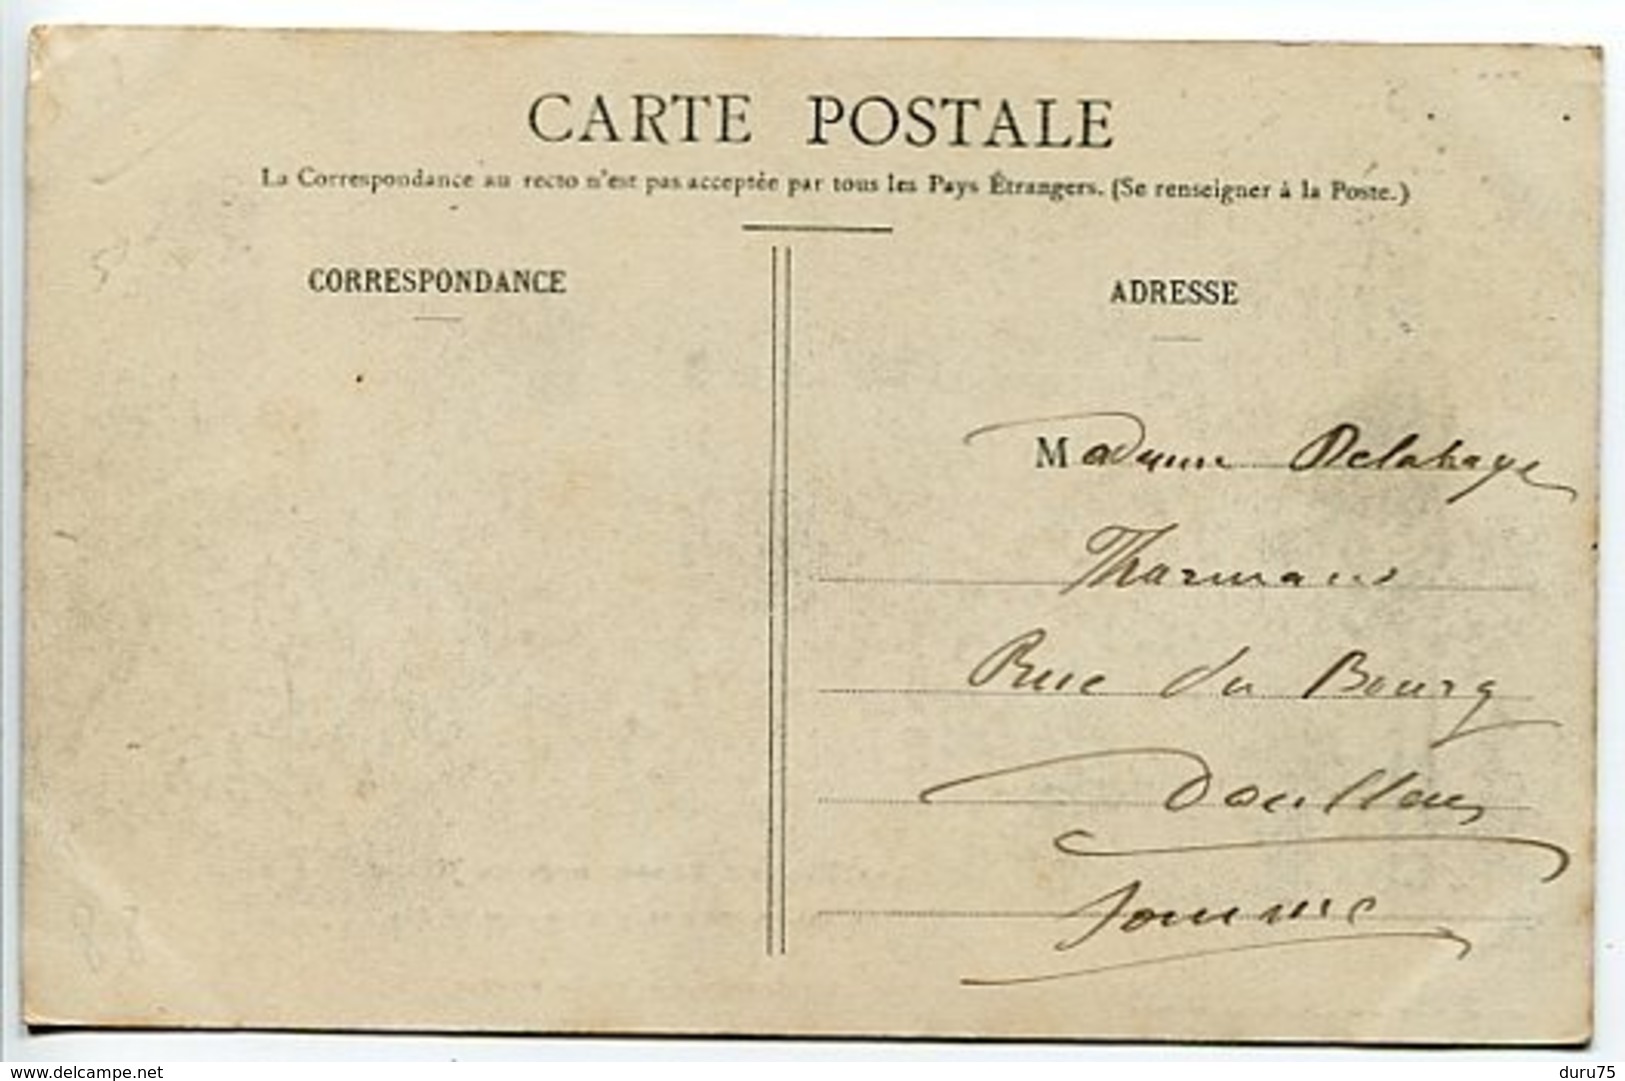 CARTE POSTALE
La Correspondance au recto n'est pas acceptée par tous les Pays Étrangers. (Se renseigner à la Poste.)
CORRESPONDANCE
ADRESSE
Madame Delahaye
Rue du Bourg
Doullens
Somme
www.delcampe.net
duru75